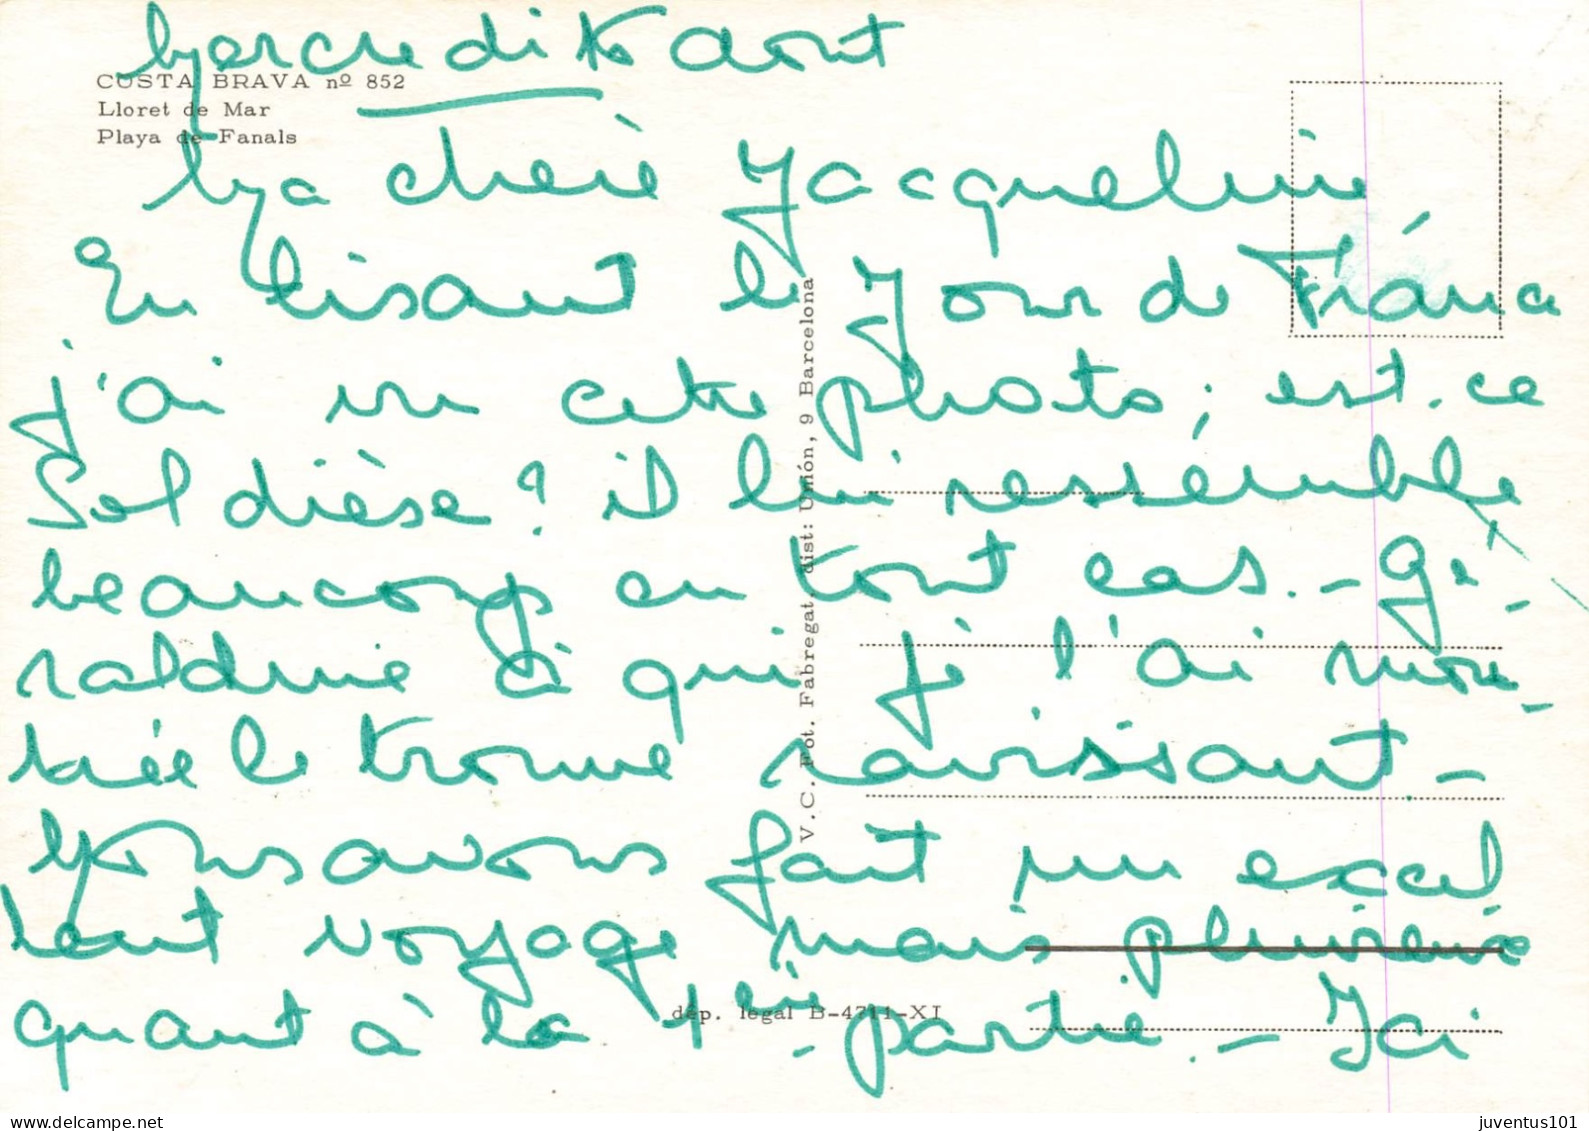 Mercredi 16 aout
COSTA BRAVA nº 852
Lloret de Mar
Playa de Fanals
Ma chère Jacqueline
En lisant le Jour de France
j'ai vu cette photo; est-ce
Sol dièse? il lui ressemble
beaucoup en tout cas. - Gé-
raldine à qui je l'ai mon-
trée le trouve ravissant -
Nous avons fait un excel
lent voyage mais pluvieux
quant à la 1ère partie. - Ici
V. C. Fot. Fabregat, dist: Unión, 9 Barcelona
dép. legal B-4711-XI
delcampe.net
juventus101